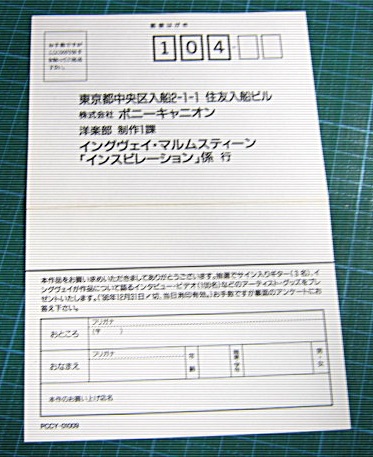 郵便はがき
お手数ですが
104-
東京都中央区入船2-1-1 住友入船ビル
株式会社 ポニーキャニオン
洋楽部 制作1課
イングヴェイ・マルムスティーン
「インスピレーション」係 行
本作品をお買い求めいただきましてありがとうございます。抽選でサイン入りギター(3名)、イ
ングヴェイが作品について語るインタビュー・ビデオ(100名)などのアーティスト・グッズをプレ
ゼントいたします。('96年12月31日〆切、当日消印有効。)お手数ですが裏面のアンケートにお
答え下さい。
フリガナ
おところ (〒 )
フリガナ
おなまえ 年齢 職業・学年 男・女
本作のお買い上げ店名
PCCY-01009